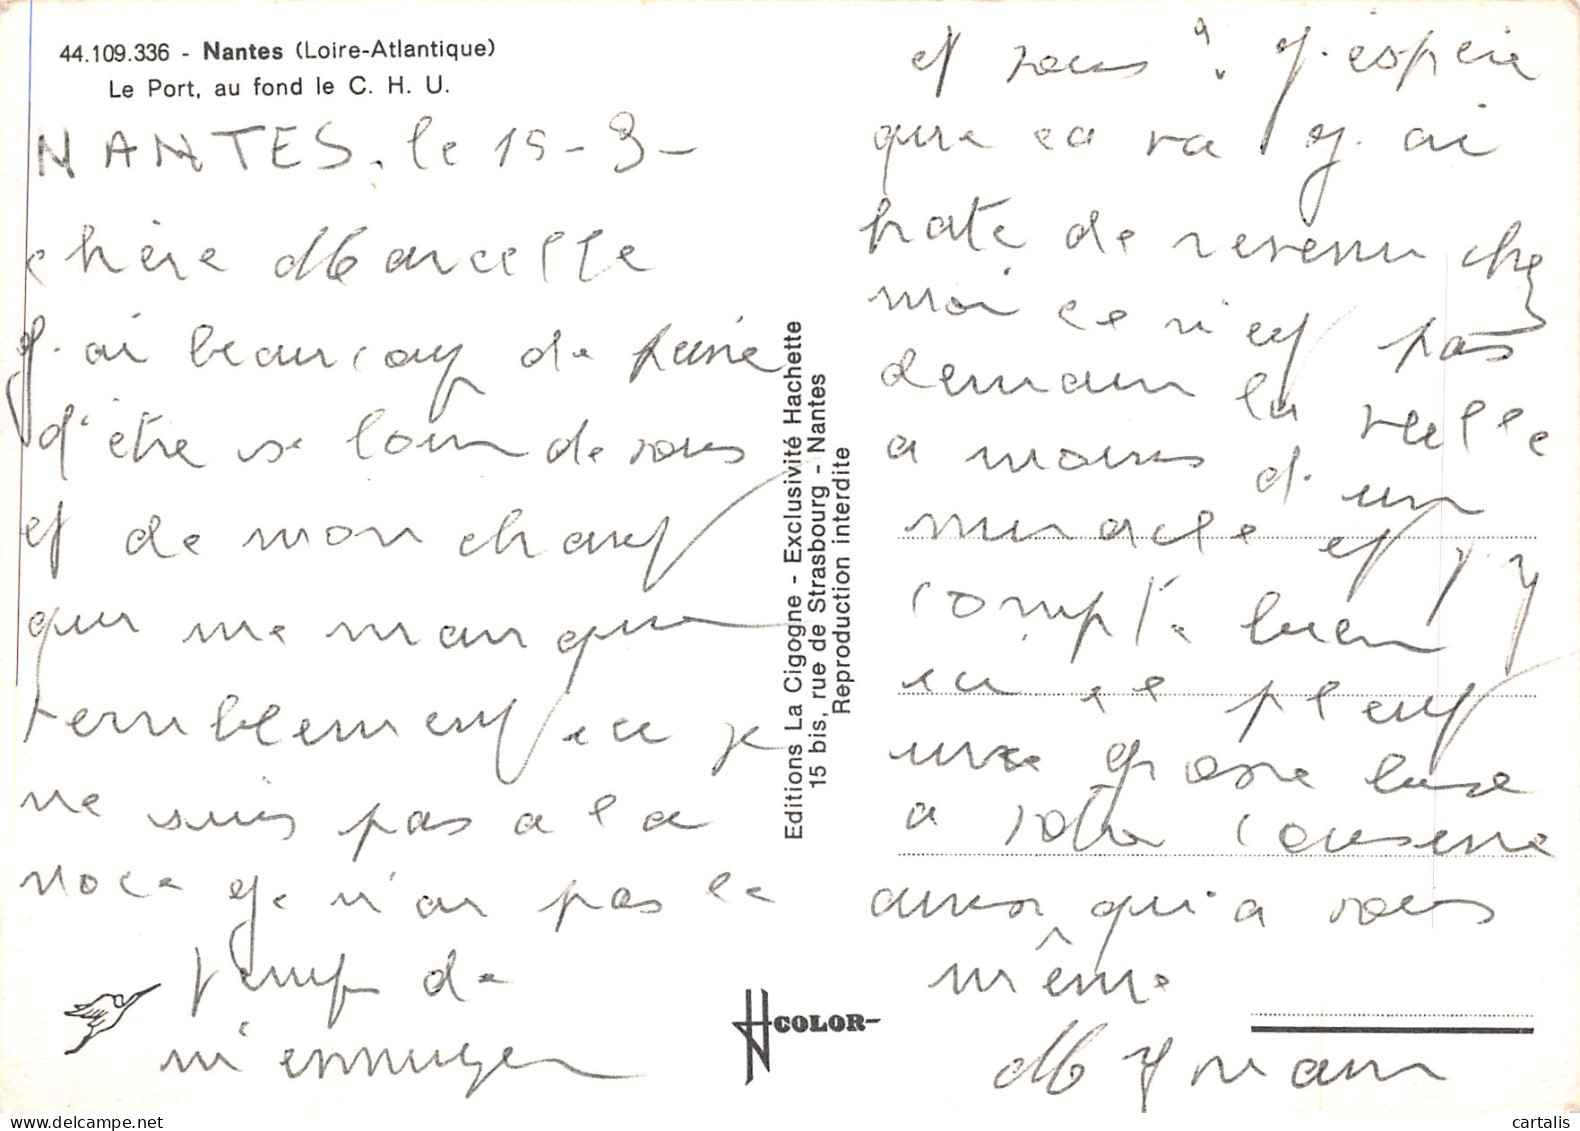 44.109.336 - Nantes (Loire-Atlantique)
Le Port, au fond le C. H. U.
NANTES. le 15-3-
chère Marcelle
J'ai beaucoup de peine
d'être si loin de vous
et de mon chauf
qui me manque
terriblement ici je
ne suis pas à la
noce je n'ai pas le
temps de
m'ennuyer
Editions La Cigogne - Exclusivité Hachette
15 bis, rue de Strasbourg - Nantes
Reproduction interdite
COLOR-
et vous ? J'espère
que ca va J'ai
hate de revenir chez
moi ce n'est pas
demain la veille
a moins d'un
miracle et j'y
compte bien
ici il pleut
une grosse bise
a votre
ainsi qu'a vous
même
M Yvain
cartalis